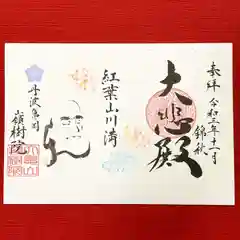 奉拝 令和三年十一月
錦秋
大悲殿
紅葉山川満
丹波亀岡
嶺樹院